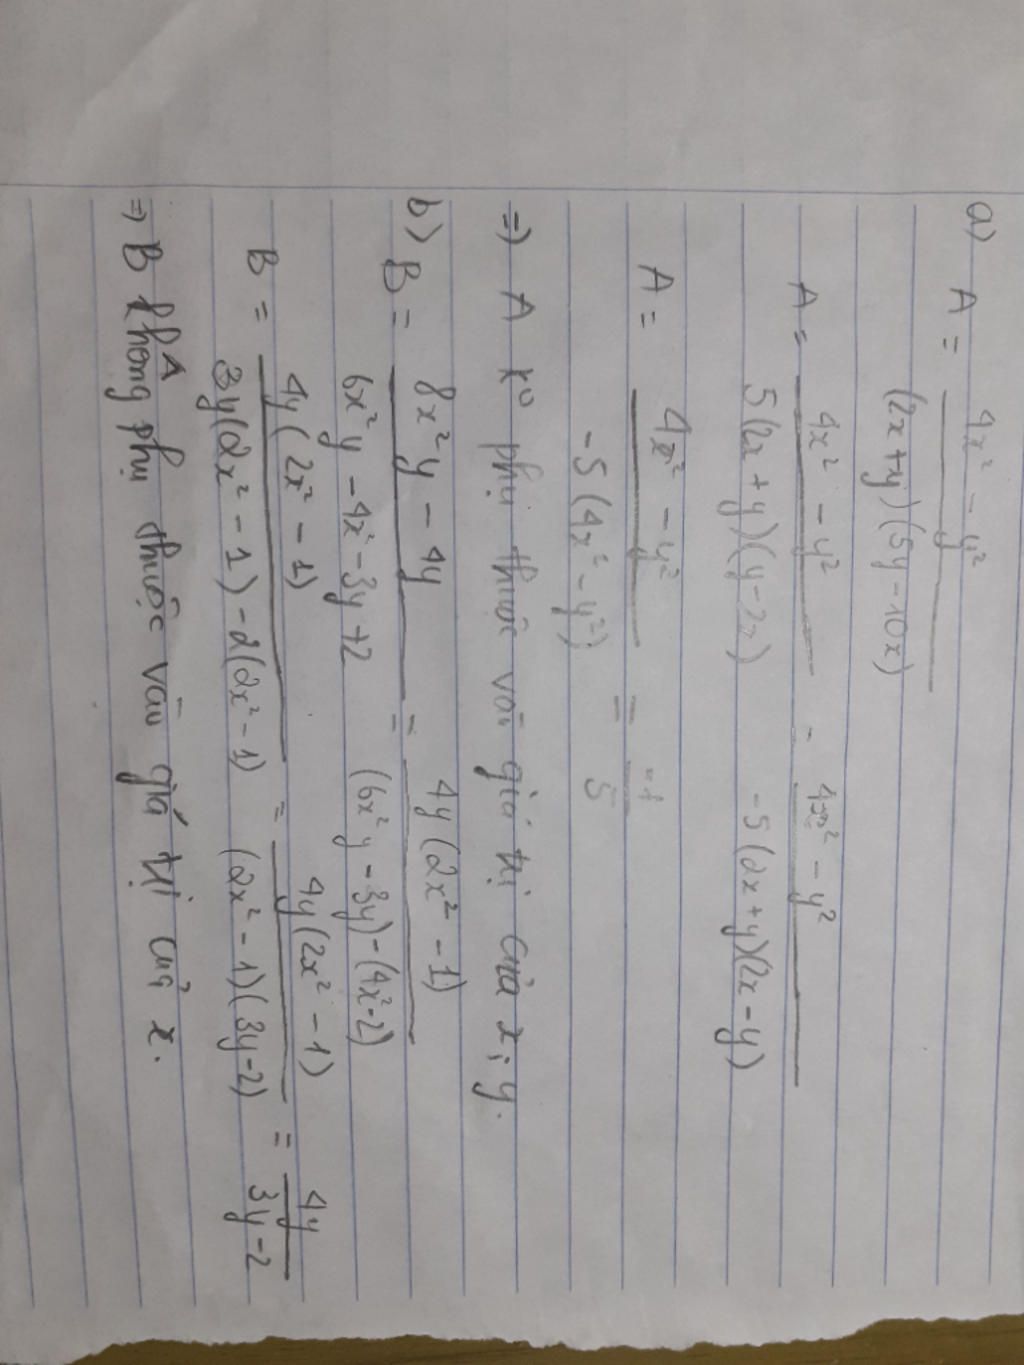 a) A = 4x² - y² / (2x+y)(5y-10x)
A = 4x² - y² / 5(2x+y)(y-2x) = 4x² - y² / -5(2x+y)(2x-y)
A = 4x² - y² / -5(4x² - y²) = -1 / 5
=) A k⁰ phụ thuộc vào giá trị của x; y.
b) B = 8x²y - 4y / 6x²y - 4x² - 3y + 2 = 4y(2x² - 1) / (6x²y - 3y) - (4x² - 2)
B = 4y(2x² - 1) / 3y(2x² - 1) - 2(2x² - 1) = 4y(2x² - 1) / (2x² - 1)(3y - 2) = 4y / 3y - 2
=) B không phụ thuộc vào giá trị của x.